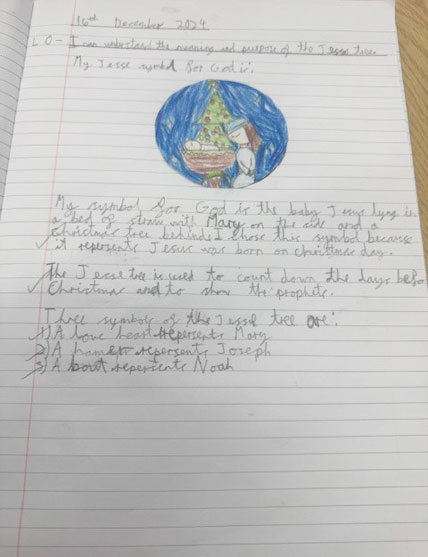 16th December 2024
LO - I can understand the meaning and purpose of the Jesse tree.
My Jesse symbol for God is:
My symbol for God is the baby Jesus lying in
a bed of straw with Mary on the side and a
christmas tree behind. I chose this symbol because
it repersents Jesus was born on christmas day.
The Jesse tree is used to count down the days befo
Christmas and to show the prophets.
Three symbols of this Jesse tree are:
1) A love heart repersents Mary
2) A hamer repersents Joseph
3) A bout repersents Noah